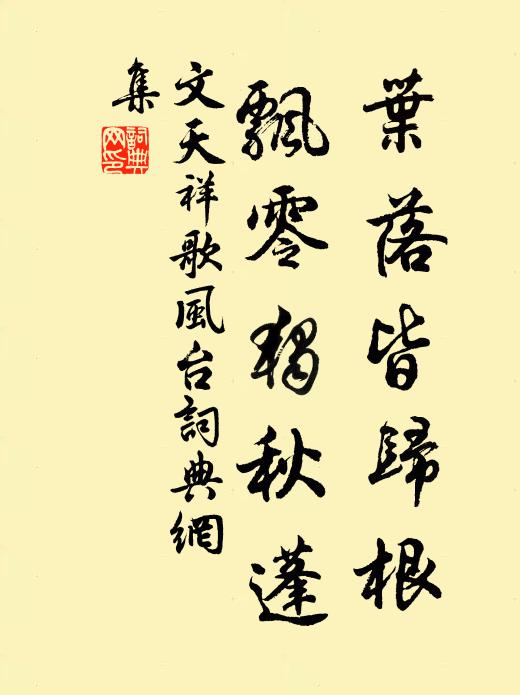 葉落皆歸根
飄零獨秋蓬
文天祥歌風台詞典網
集
詞典
网印